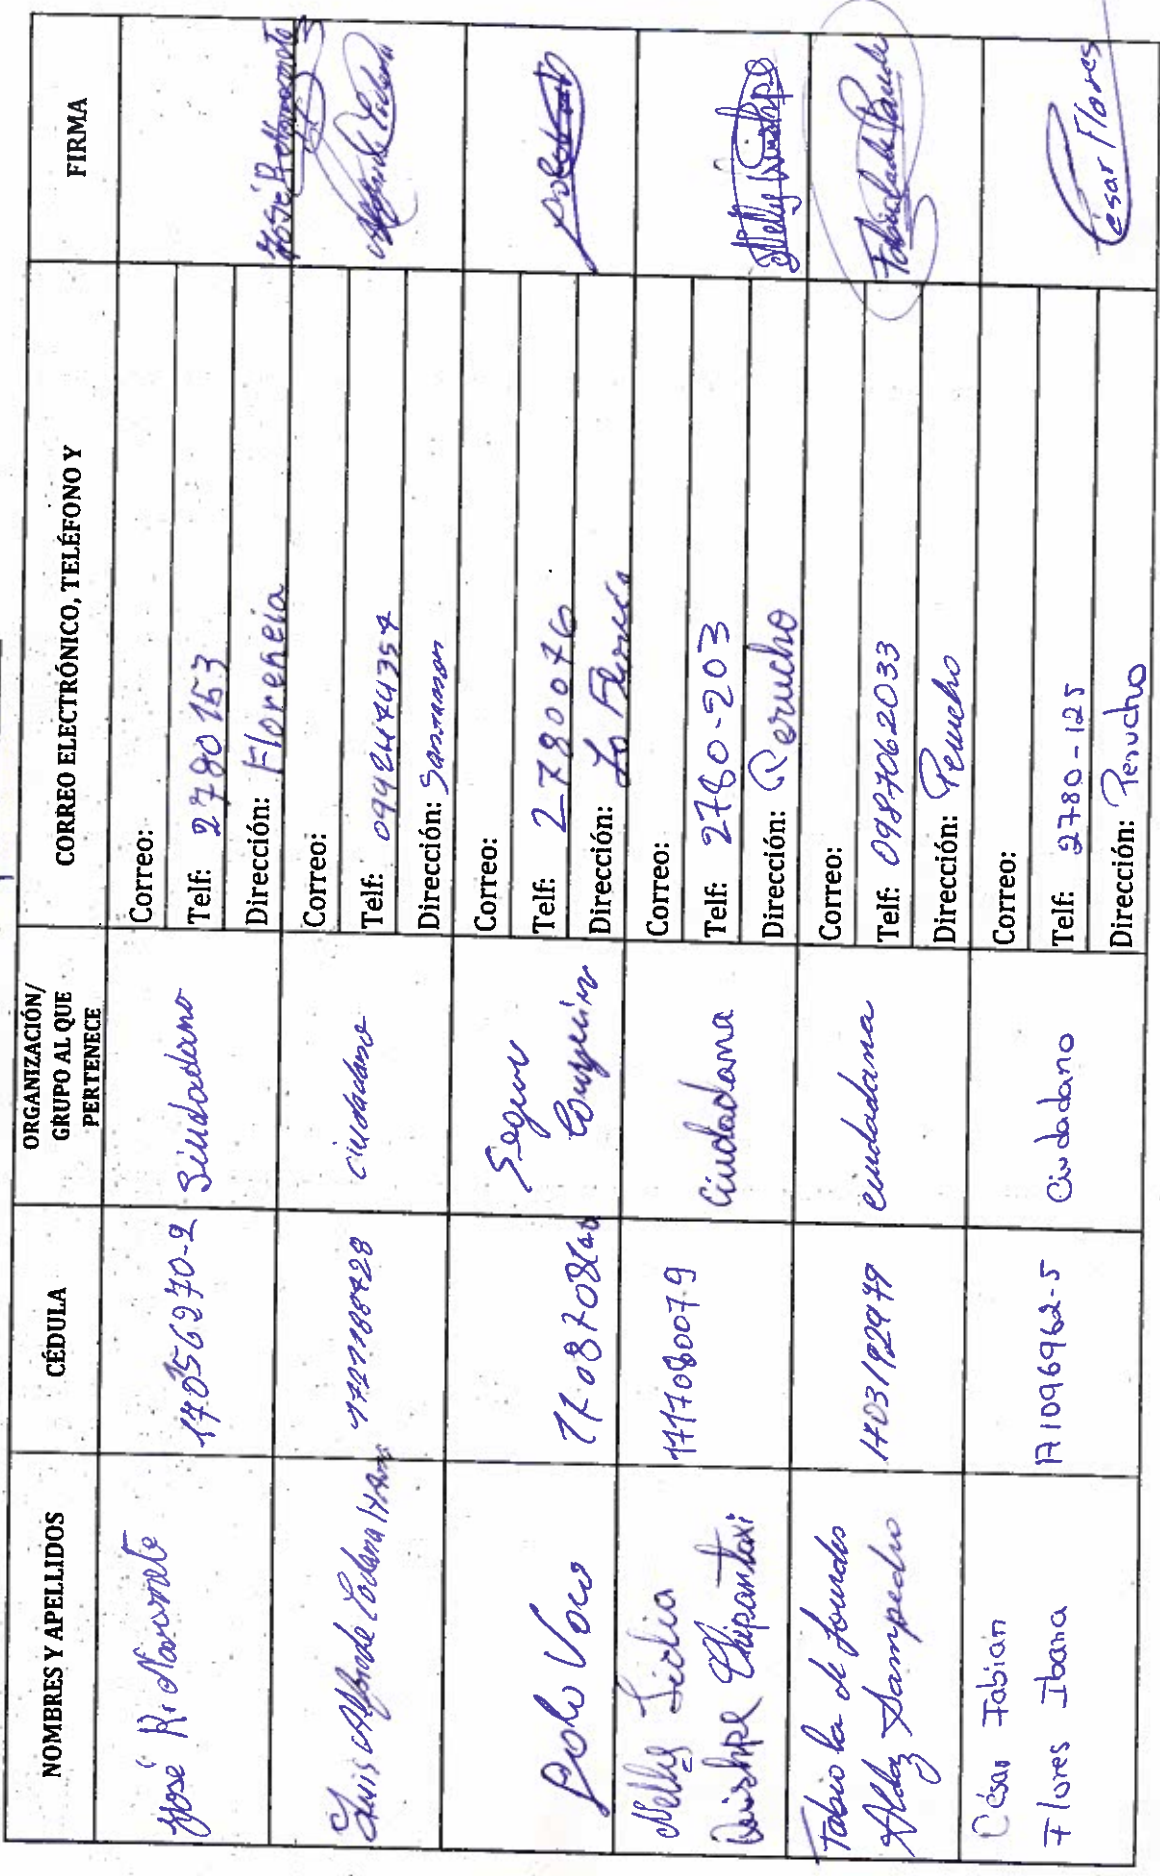 NOMBRES Y APELLIDOS
CÉDULA
ORGANIZACIÓN/
GRUPO AL QUE
PERTENECE
CORREO ELECTRÓNICO, TELÉFONO Y
FIRMA
José R. Navarrete
170556270-2
Siudadano
Correo:
Telf: 2780153
Dirección: Florencia
José R Navarrete
Luis Alfonde
ciudadano
Correo:
Telf:
Dirección:
Polo Vaca
Seguro
Correo:
Telf: 2780076
Dirección:
Nelly Lidia
Quishpe Chipantaxi
171708007-9
Ciudadana
Correo:
Telf: 2780-203
Dirección: Perucho
Nelly Quishpe
Fabiola de Lourdes
Aldaz Sampedro
1703192979
ciudadana
Correo:
Telf: 0987062033
Dirección: Perucho
César Fabián
Flores Ibarra
171096962-5
Ciudadano
Correo:
Telf: 2780-125
Dirección: Perucho
César Flores